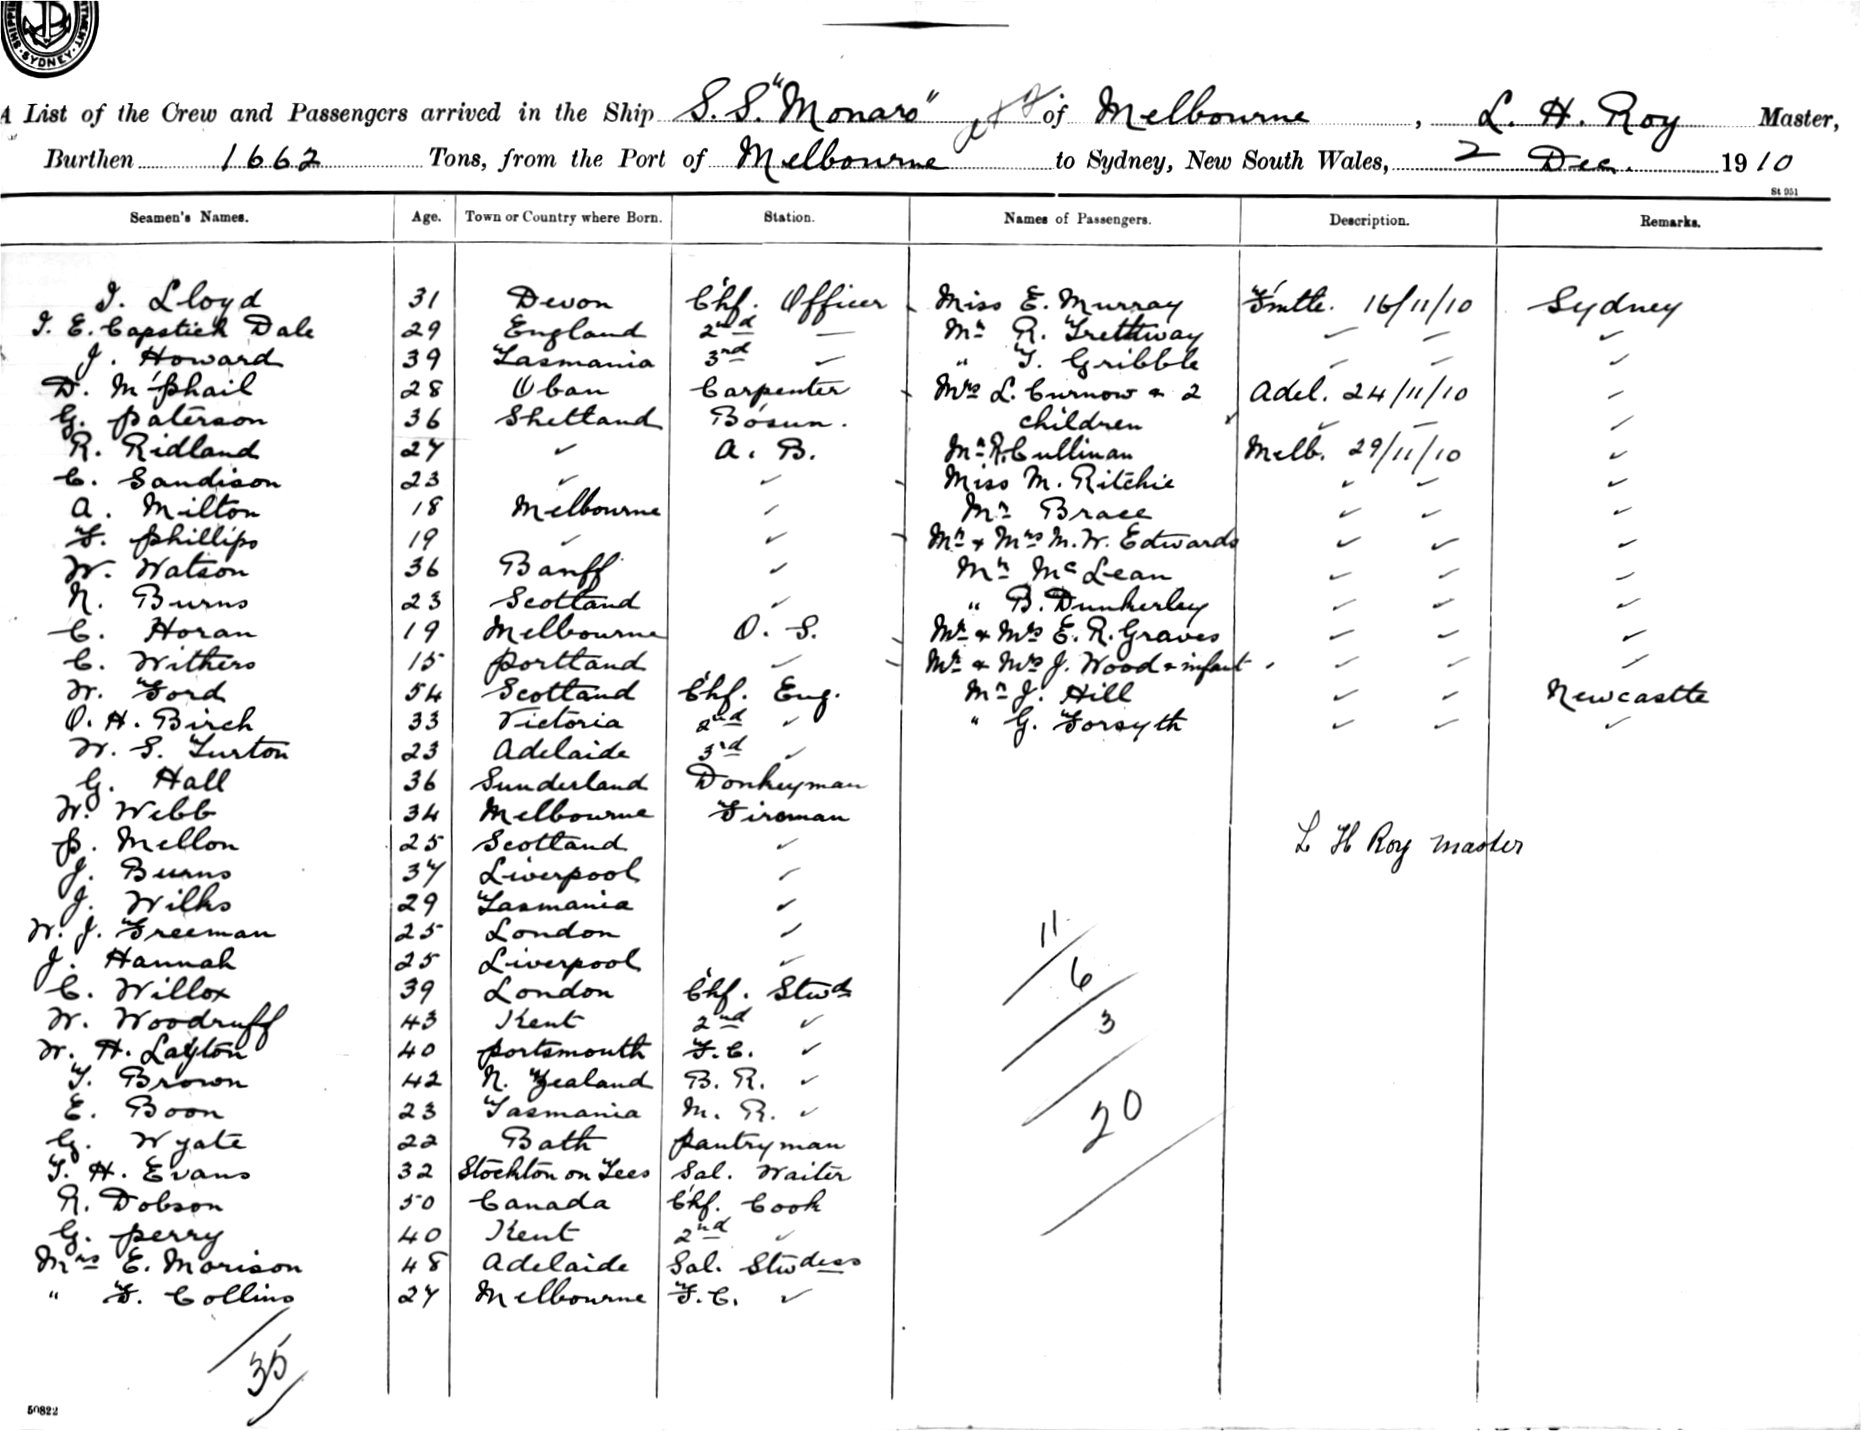 SHIPPING DEPARTMENT · SYDNEY ·
A List of the Crew and Passengers arrived in the Ship S.S. "Monaro" of Melbourne, L. H. Roy Master,
Burthen 1662 Tons, from the Port of Melbourne to Sydney, New South Wales, 2 Dec. 1910
St 951
Seamen's Names. Age. Town or Country where Born. Station. Names of Passengers. Description. Remarks.
I. Lloyd 31 Devon Chf. Officer Miss E. Murray F'mtle. 16/11/10 Sydney
I. E. Capstick Dale 29 England 2nd — Mr R. Trettway ✓ — ✓
J. Howard 39 Tasmania 3rd ✓ " T. Gribble ✓ — ✓
D. McPhail 28 Oban Carpenter Mrs L. Curnow & 2 Adel. 24/11/10 ✓
G. Paterson 36 Shetland Bosun. children ✓ — ✓
R. Ridland 27 ✓ A. B. Mr R. Cullinan Melb. 29/11/10 ✓
C. Sandison 23 ✓ ✓ Miss M. Ritchie ✓ ✓ ✓
A. Milton 18 Melbourne ✓ Mr Brace ✓ ✓ ✓
F. Phillips 19 ✓ ✓ Mr & Mrs M. W. Edwards ✓ ✓ ✓
W. Watson 36 Banff ✓ Mr McLean ✓ ✓ ✓
N. Burns 23 Scotland ✓ " B. Dunkerley ✓ ✓ ✓
C. Horan 19 Melbourne O. S. Mr & Mrs E. R. Graves ✓ ✓ ✓
C. Withers 15 Portland ✓ Mr & Mrs J. Wood & infant ✓ ✓ ✓
W. Ford 54 Scotland Chf. Eng. Mr J. Hill ✓ ✓ Newcastle
O. H. Birch 33 Victoria 2nd ✓ " G. Forsyth ✓ ✓ ✓
W. S. Turton 23 Adelaide 3rd ✓
G. Hall 36 Sunderland Donkeyman
W. Webb 34 Melbourne Fireman
P. Mellon 25 Scotland ✓
L H Roy master
J. Burns 37 Liverpool ✓
J. Wilks 29 Tasmania ✓
W. J. Freeman 25 London ✓
J. Hannah 25 Liverpool ✓
C. Willox 39 London Chf. Stwd
W. Woodruff 43 Kent 2nd ✓
W. H. Layton 40 Portsmouth F.C. ✓
T. Brown 42 N. Zealand B. R. ✓
E. Boon 23 Tasmania M. R. ✓
G. Wyate 22 Bath Pantryman
T. H. Evans 32 Stockton on Tees Sal. Waiter
R. Dobson 50 Canada Chf. Cook
G. Perry 40 Kent 2nd ✓
Mrs E. Morison 48 Adelaide Sal. Stwdess
" F. Collins 27 Melbourne F.C. ✓
11
6
3
20
35
50822